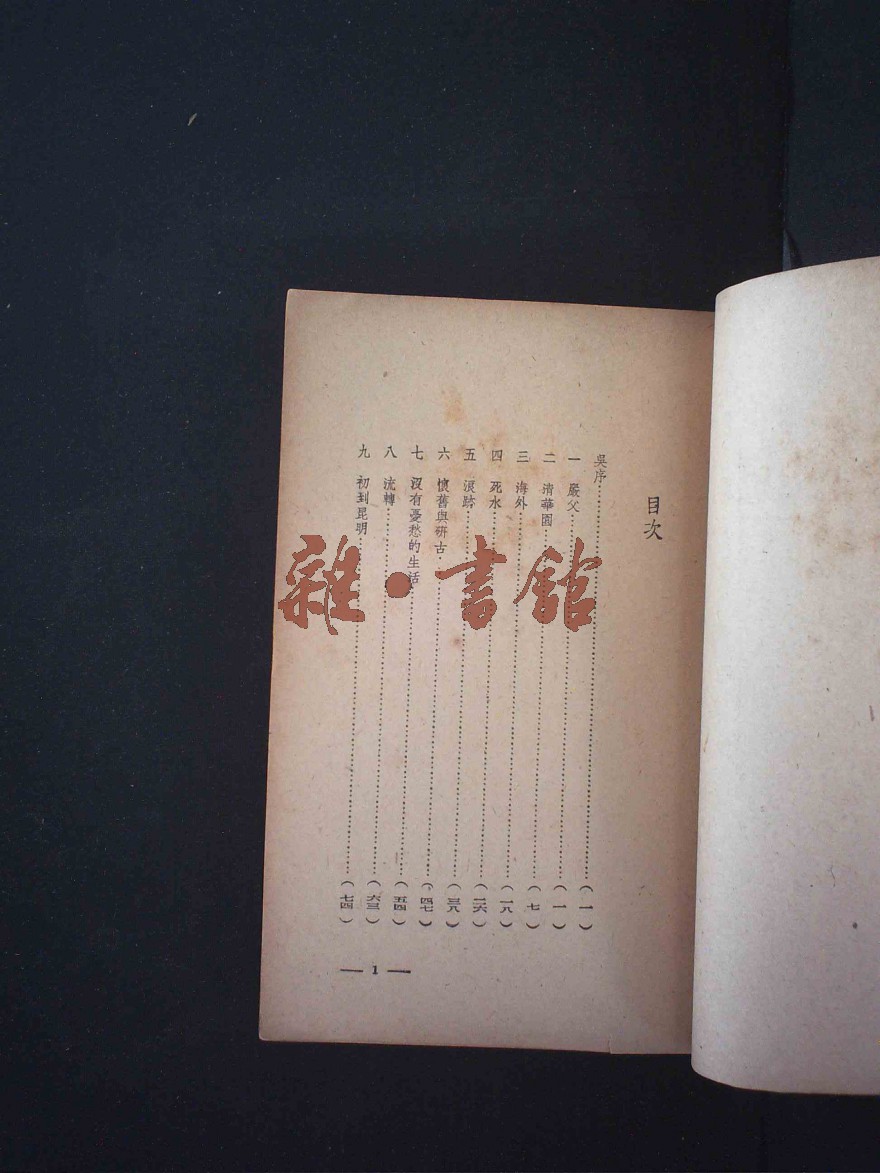 目次
吳序……(一)
一 嚴父……(一)
二 清華園……(七)
三 海外……(一八)
四 死水……(二六)
五 淚跡……(三八)
六 懷舊與研古……(四七)
七 沒有憂愁的生活……(五四)
八 流轉……(六三)
九 初到昆明……(七四)
— 1 —
雜·書館